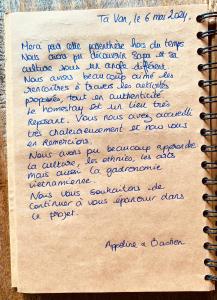 Ta Van, le 6 mai 2024.
Merci pour cette parenthèse hors du temps
Nous avons pu découvrir Sapa et sa
culture sous un angle différent.
Nous avons beaucoup aimé les
rencontres à travers les activités
proposées, tout en authenticité.
Le homestay est un lieu très
Reposant. Vous nous avez accueilli
très chaleureusement et nous vous
en Remercions.
Nous avons pu beaucoup apprendre
la culture, les ethnies, les arts
mais aussi la gastronomie
vietnamienne.
Nous vous souhaitons de
Continuer à vous épanouir dans
ce projet.
Appoline & Bastien